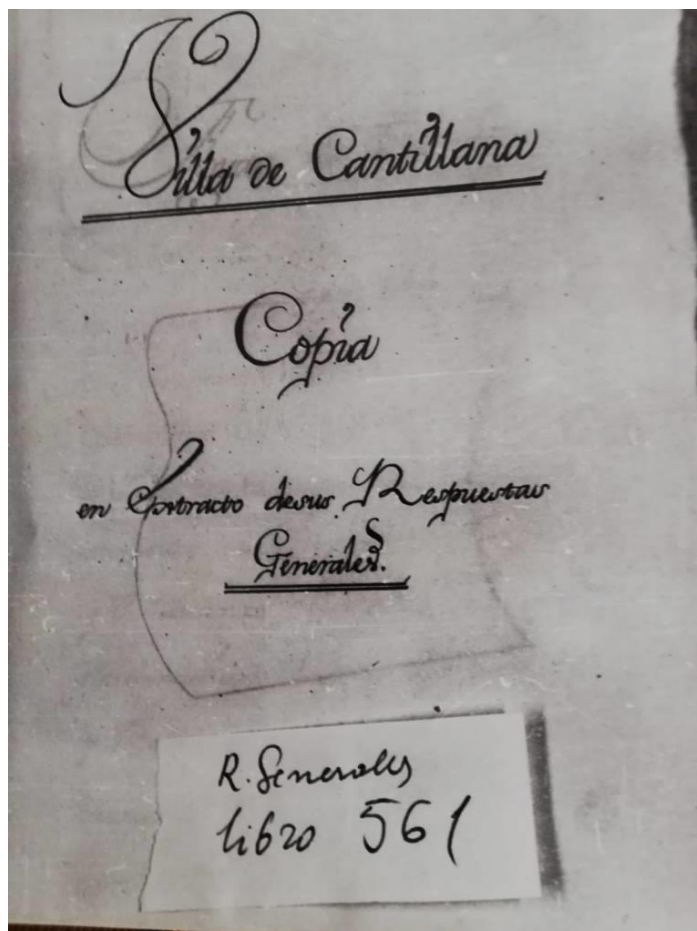 Villa de Cantillana
Copia
en Extracto desus Respuestas
Generales.
R. Generales
libro 561